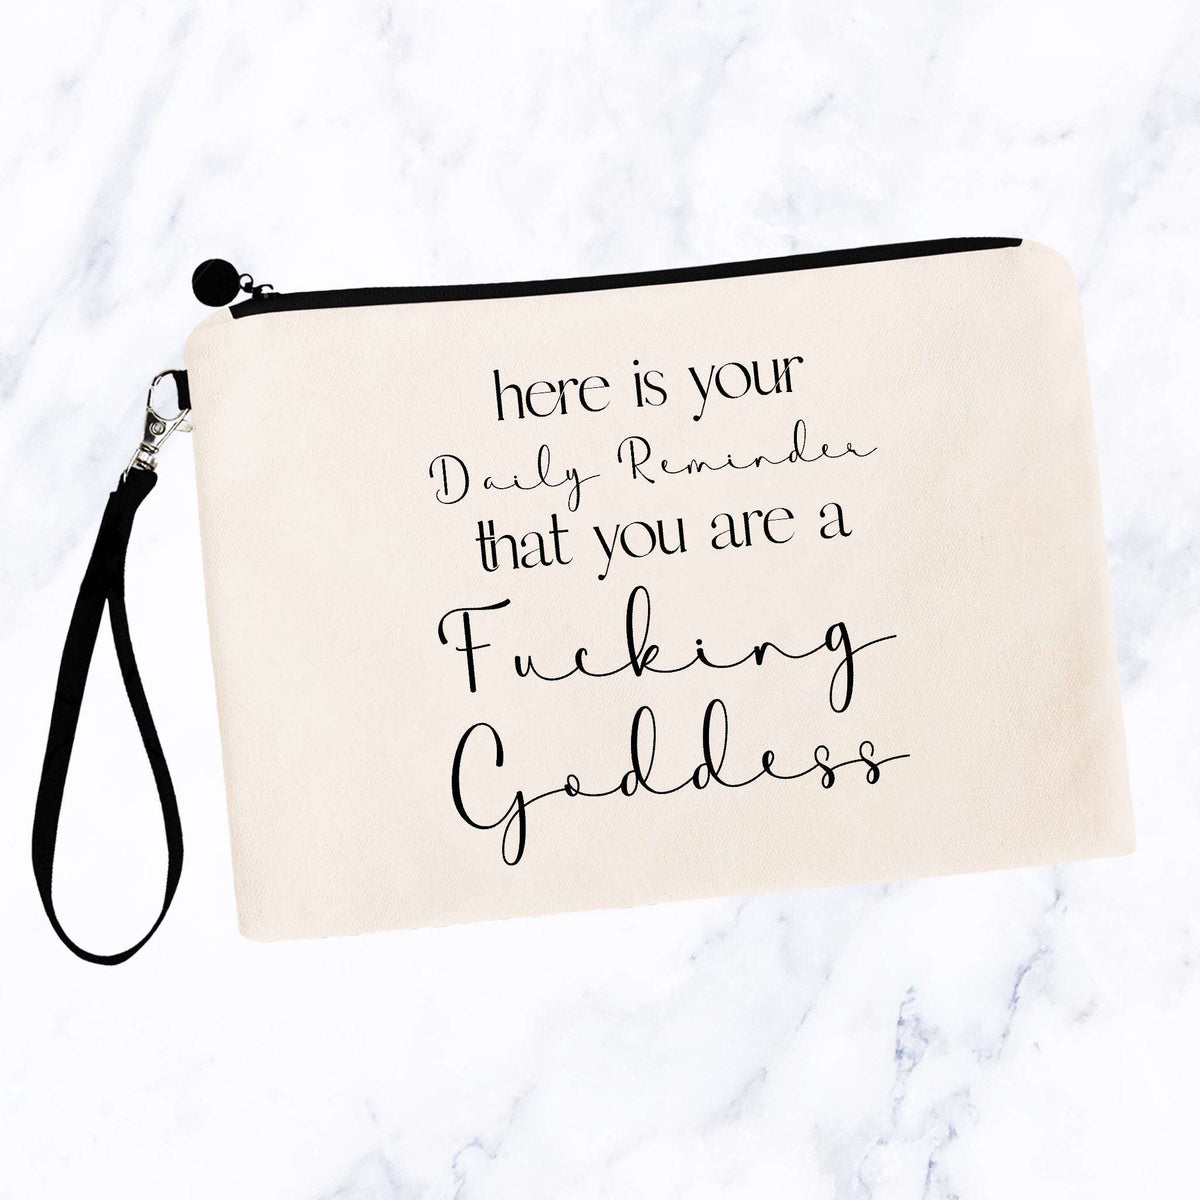 here is your
Daily Reminder
that you are a
Fucking
Goddess